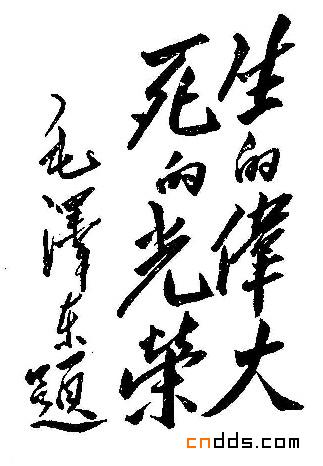 生的偉大
死的光榮
毛澤东题
cndds.com